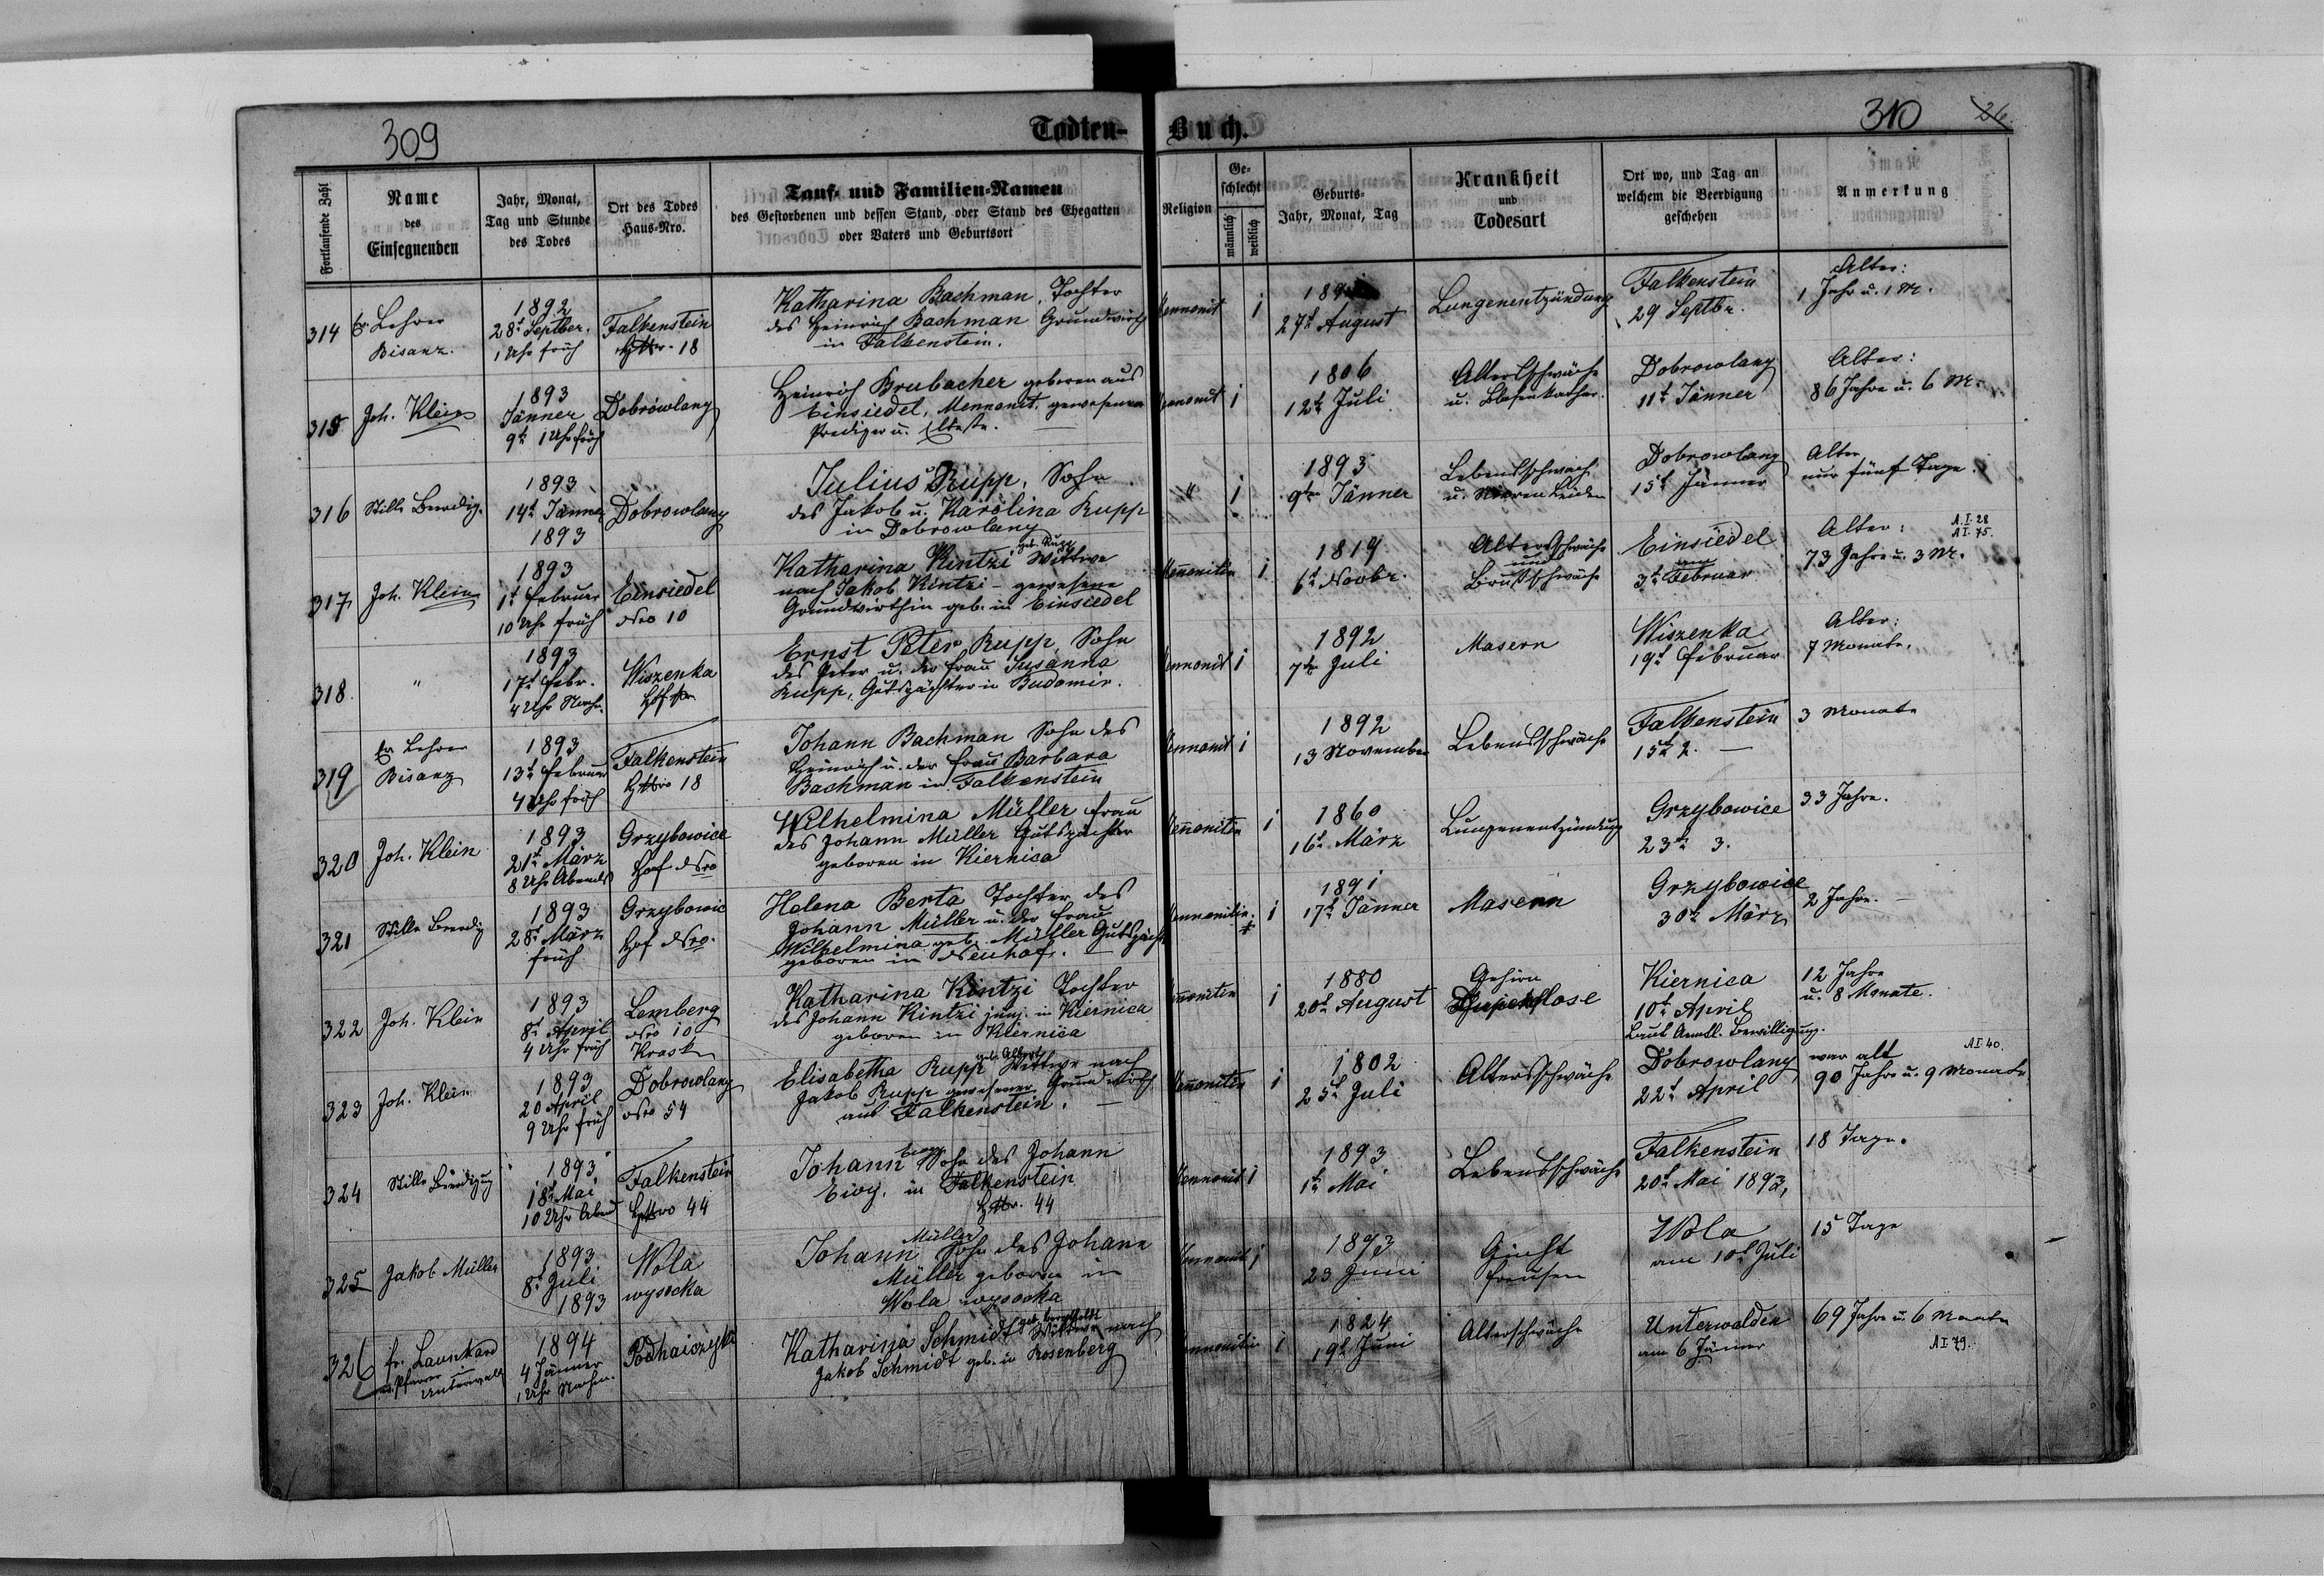 309
Todten-Buch.
310
26.
Fortlaufende Zahl
Name des Einsegnenden
Jahr, Monat, Tag und Stunde des Todes
Ort des Todes Haus-Nro.
Tauf- und Familien-Namen
des Gestorbenen und dessen Stand, oder Stand des Ehegatten
oder Vaters und Geburtsort
Religion
Geschlecht
männlich
weiblich
Geburts-Jahr, Monat, Tag
Krankheit und Todesart
Ort wo, und Tag an welchem die Beerdigung geschehen
Anmerkung
314
Lehrer
Bisanz.
1892
28t Septber.
1 Uhr früh
Falkenstein
18
Katharina Bachman, Tochter
des Heinrich Bachman Grundwirth
in Falkenstein.
Mennonit
1
27t August
Lungenentzündung
Falkenstein
29 Septbr.
Alter:
1 Jahr u. 1 M.
315
Joh. Klein
1893
Jänner
9t 1 Uhr früh
Dobrowlany
Heinrich Brubacher geboren aus
Einsiedel, Mennonit, gewesener
Prediger u. Elteste.
Mennonit
1
1806
12t Juli
Altersschwäche
u. Blasenkathar.
Dobrowlany
11t Jänner
Alter:
86 Jahre u. 6 M.
316
Stille Beerdig.
1893
14t Jänner
1893
Dobrowlany
Julius Rupp, Sohn
des Jakob u. Karolina Rupp
in Dobrowlany
"
1
1893
9te Jänner
Lebensschwach
u. Nieren Leiden
Dobrowlany
15t Jänner
Alter
nur fünf Tage.
317
Joh. Klein
1893
1t Februar
10 Uhr früh
Einsiedel
Nro 10
Katharina Kintzi geb. Rupp Wittwe
nach Jakob Kintzi – gewesene
Grundwirthin geb. in Einsiedel
Mennonitin
1
1819
6t Novbr.
Altersschwäche
und
Brustschwäche
Einsiedel
am
3t Februar
Alter:
73 Jahre u. 3 M.
A. I. 28
A I. 75.
318.
"
1893
17t Febr.
4 Uhr Nachm.
Wiszenka
Ernst Peter Rupp, Sohn
des Peter u. der Frau Susanna
Rupp, Gutspächter in Budomir.
Mennonit
1
1892
7te Juli
Masern
Wiszenka
19t Februar
Alter:
7 Monate.
319
Lehrer
Bisanz
1893
13t Februar
4 Uhr früh
Falkenstein
18
Johann Bachman Sohn des
Heinrich u. der Frau Barbara
Bachman in Falkenstein
Mennonit
1
1892
13 November
Lebensschwäche
Falkenstein
15t 2. —
3 Monate
320
Joh. Klein
1893
21t März
8 Uhr Abends
Grzybowice
Hof Nro
Wilhelmina Müller Frau
des Johann Müller Gutspächter
geboren in Kiernica
Mennonitin
1
1860
16t März
Lungenentzündung
Grzybowice
23t 3.
33 Jahre.
321
Stille Beerdig
1893
28t März
früh
Grzybowic
Hof Nro.
Helena Berta Tochter des
Johann Müller u. der Frau
Wilhelmina geb. Müller Gutspächter
geboren in Neuhof. —
Mennonitin.
1
1891
17t Jänner
Masern
Grzybowice
30t März
2 Jahre. —
322
Joh. Klein
1893
8t April
4 Uhr früh
Lemberg
Nro 10
Katharina Kintzi Tochter
des Johann Kintzi junj. in Kiernica
geboren in Kiernica
Mennonitin
1
1880
20t August
Gehirn
Kiernica
10t April
Laut Amtl. Bewilligung.
12 Jahre
u. 8 Monate.
323
Joh. Klein
1893
20 April
9 Uhr früh
Dobrowlany
Nro 54
Elisabetha Rupp geb. Albert Wittwe nach
Jakob Rupp gewesener Grundwirth
aus Falkenstein. —
Mennonitin
1
1802
25t Juli
Altersschwäche
Dobrowlany
22t April
war alt
90 Jahre u. 9 Monate
A I 40.
324
Stille Beerdigung
1893
18t Mai
10 Uhr Abend
Falkenstein
44
Johann Ewy Sohn des Johann
Ewy. in Falkenstein
44
Mennonit
1
1893
1t Mai
Lebensschwäche
Falkenstein
20t Mai 1893,
18 Tage.
325
Jakob Müller
1893
8t Juli
1893
Wola
wysocka
Johann Müller Sohn des Johann
Müller geboren in
Wola wysocka
Mennonit
1
1893
23 Juni
Wola
am 10t Juli
15 Tage
326
Pfarrer
1894
4 Jänner
1 Uhr Nachm.
Katharina Schmidt Wittwe nach
Jakob Schmidt geb. in Rosenberg
Mennonitin
1
1824
19t Juni
Altersschwäche
Unterwalden
am 6 Jänner
69 Jahre u. 6 Monate
A I 79.